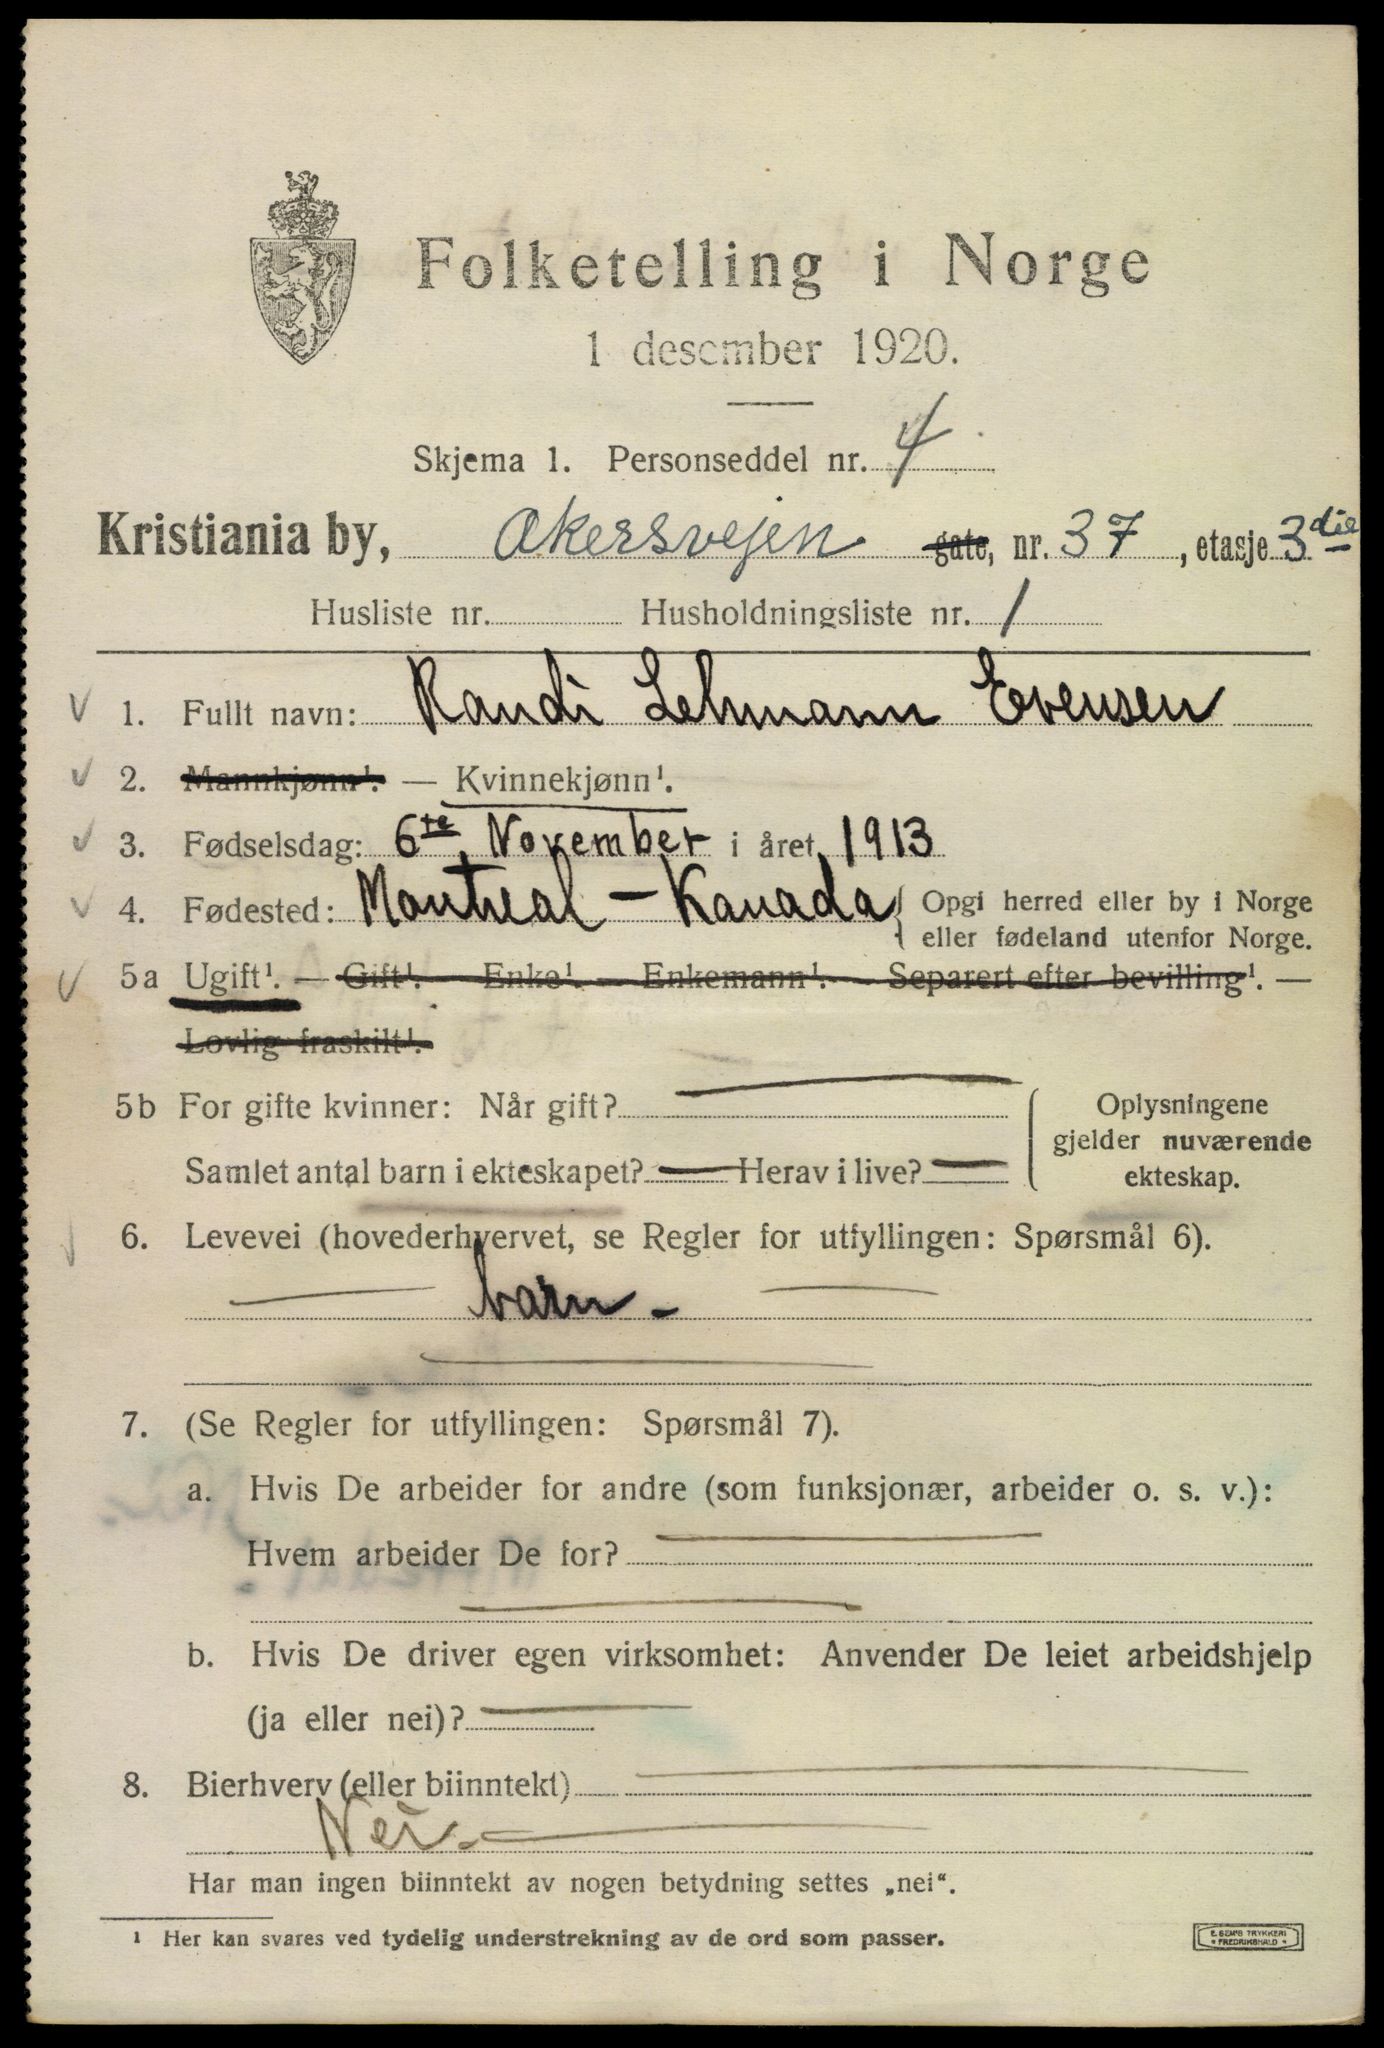 Folketelling i Norge
1 desember 1920.
Skjema 1. Personseddel nr. 4
Kristiania by, Akersvejen gate, nr. 37, etasje 3die
Husliste nr. Husholdningsliste nr. 1
1. Fullt navn: Randi Lehmann Evensen
2. Mannkjønn¹. — Kvinnekjønn¹.
3. Fødselsdag: 6te November i året 1913
4. Fødested: Montreal – Kanada { Opgi herred eller by i Norge
eller fødeland utenfor Norge.
5a Ugift¹. — Gift¹. — Enke¹. — Enkemann¹. — Separert efter bevilling¹. —
Lovlig fraskilt¹.
5b For gifte kvinner: Når gift? — Oplysningene
gjelder nuværende
Samlet antal barn i ekteskapet? — Herav i live? — ekteskap.
6. Levevei (hovederhvervet, se Regler for utfyllingen: Spørsmål 6).
— barn. —
7. (Se Regler for utfyllingen: Spørsmål 7).
a. Hvis De arbeider for andre (som funksjonær, arbeider o. s. v.):
Hvem arbeider De for? —
b. Hvis De driver egen virksomhet: Anvender De leiet arbeidshjelp
(ja eller nei)? —
8. Bierhverv (eller biinntekt) —
Nei. —
Har man ingen biinntekt av nogen betydning settes „nei“.
¹ Her kan svares ved tydelig understrekning av de ord som passer.
E. SEM'S TRYKKERI
• FREDRIKSHALD •